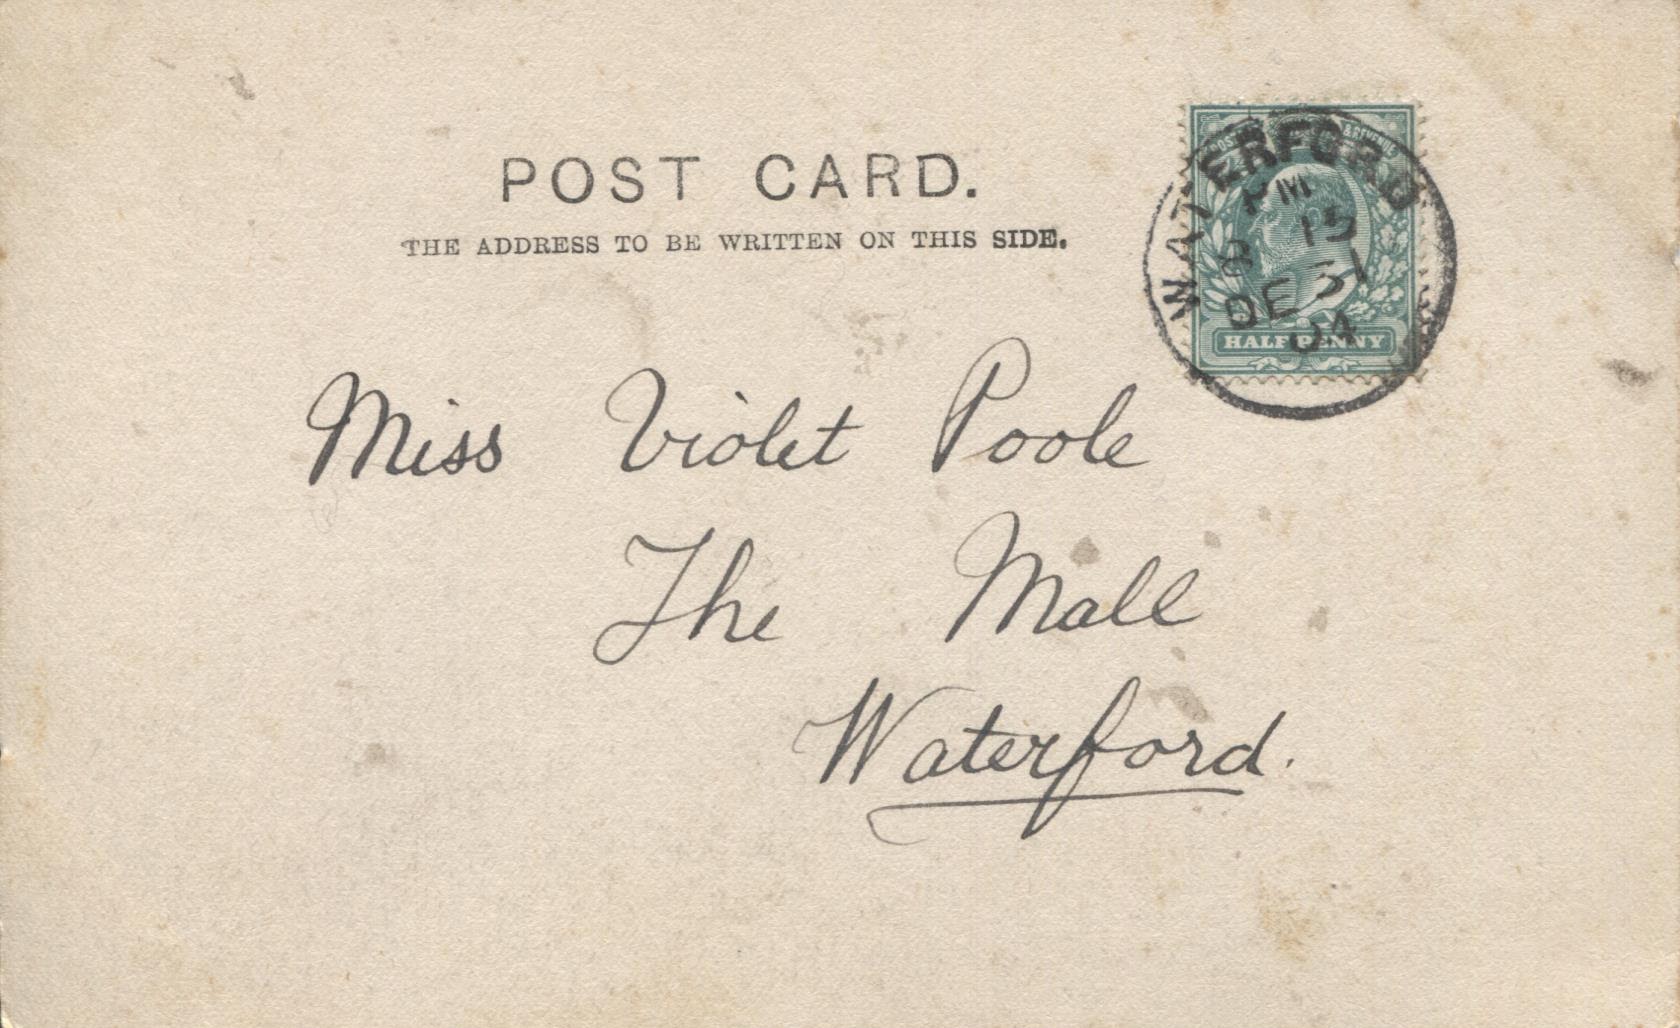 POST CARD.
THE ADDRESS TO BE WRITTEN ON THIS SIDE.
POSTAGE & REVENUE
WATERFORD
PM
8 15
DE 31
04
HALFPENNY
Miss Violet Poole
The Mall
Waterford.